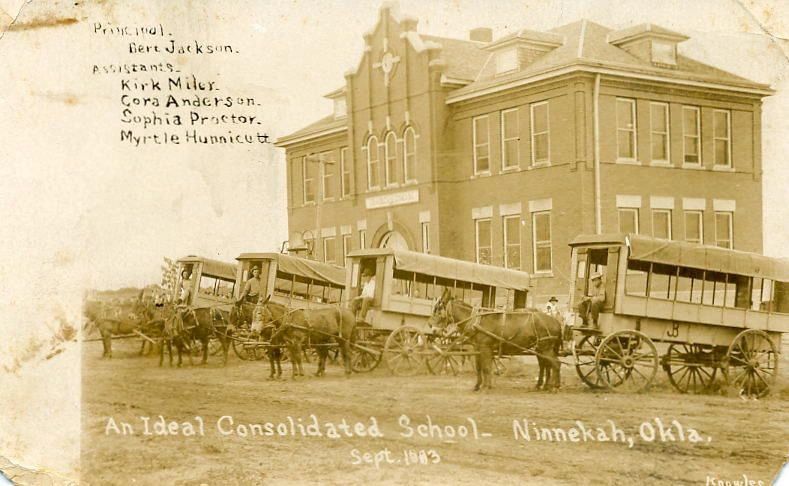 Principal.
Bert Jackson.
Assistants.
Kirk Miler.
Cora Anderson.
Sophia Proctor.
Myrtle Hunnicutt
JB
An Ideal Consolidated School - Ninnekah, Okla.
Sept. 1883
Knowles